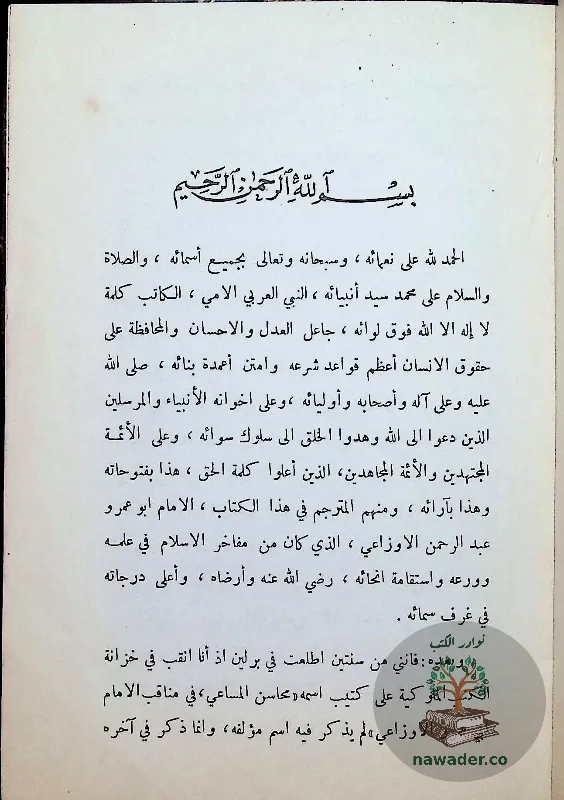 بسم الله الرحمن الرحيم
الحمد لله على نعمائه ، وسبحانه وتعالى بجميع أسمائه ، والصلاة
والسلام على محمد سيد أنبيائه ، النبي العربي الامي ، الكاتب كلمة
لا إله الا الله فوق لوائه ، جاعل العدل والاحسان والمحافظة على
حقوق الانسان أعظم قواعد شرعه وامتن أعمدة بنائه ، صلى الله
عليه وعلى آله وأصحابه وأوليائه ، وعلى اخوانه الأنبياء والمرسلين
الذين دعوا الى الله وهدوا الخلق الى سلوك سوائه ، وعلى الأئمة
المجتهدين والأئمة المجاهدين، الذين أعلوا كلمة الحق ، هذا بفتوحاته
وهذا بآرائه ، ومنهم المترجم في هذا الكتاب ، الامام ابو عمرو
عبد الرحمن الاوزاعي ، الذي كان من مفاخر الاسلام في علمه
وورعه واستقامة انحائه ، رضي الله عنه وأرضاه ، وأعلى درجاته
في غرف سمائه .
وبعده : فانني من سنتين اطلعت في برلين اذ أنا انقب في خزانة
الكتب الملوكية على كتيب اسمه «محاسن المساعي، في مناقب الامام
الاوزاعي» لم يذكر فيه اسم مؤلفه، وانما ذكر في آخره
نوادر الكتب
nawader.co